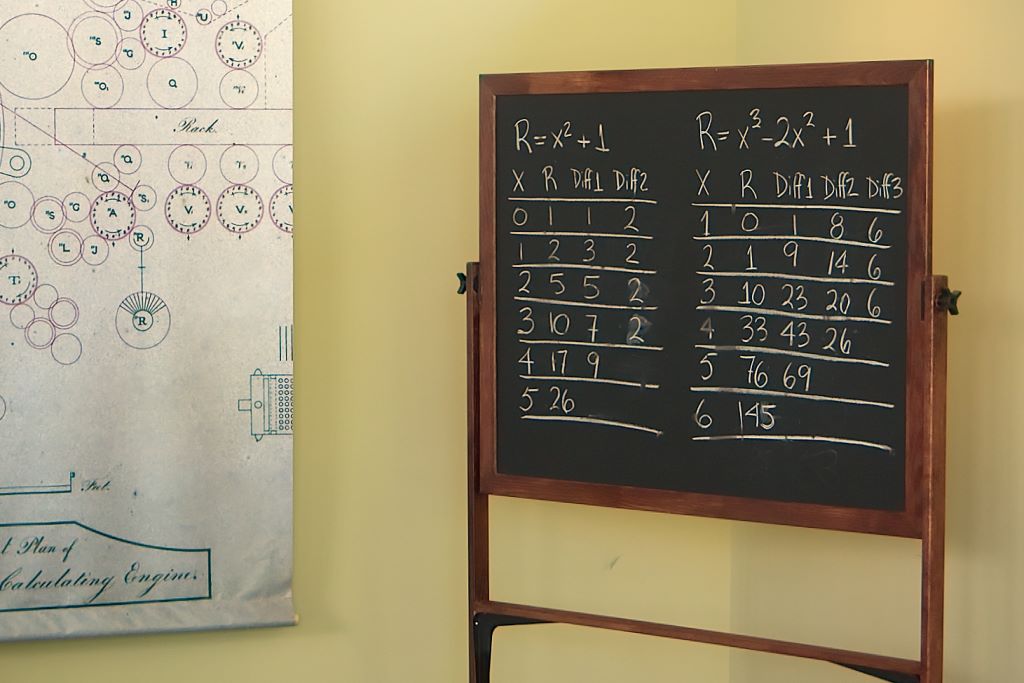 Rack
Plan of
Calculating Engine.
R=x²+1
X R Diff1 Diff2
0 1 1 2
1 2 3 2
2 5 5 2
3 10 7 2
4 17 9
5 26
R=x³-2x²+1
X R Diff1 Diff2 Diff3
1 0 1 8 6
2 1 9 14 6
3 10 23 20 6
4 33 43 26
5 76 69
6 145